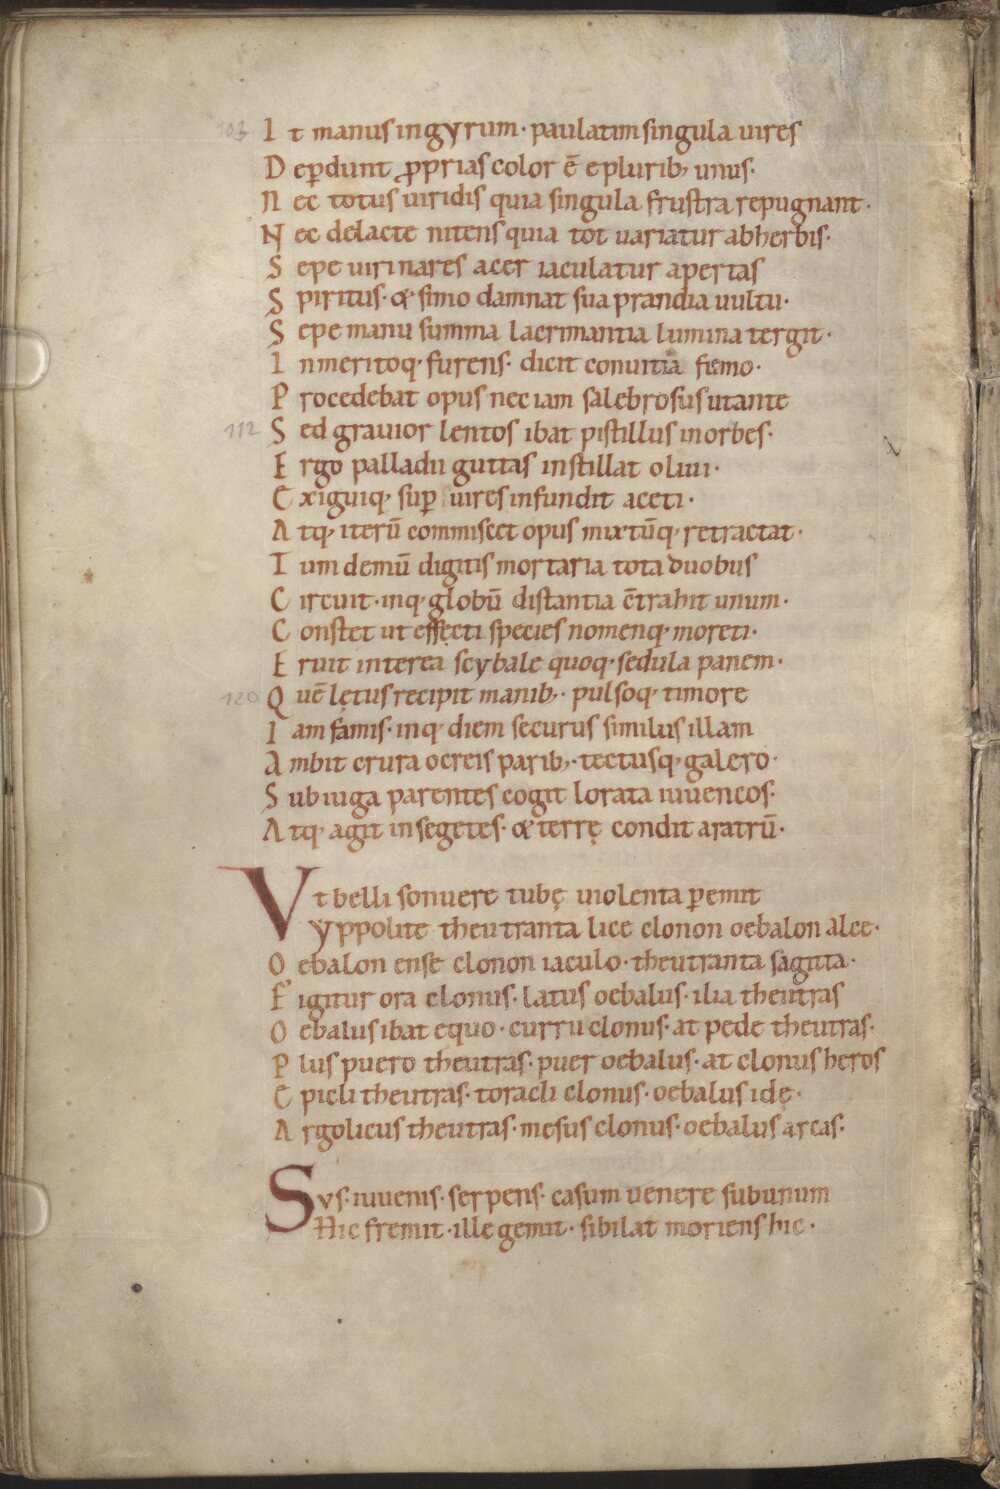 103 It manus in gyrum· paulatim singula uires
Deꝑdunt ꝓprias color ē e plurib; unus·
Nec totus uiridis quia singula frustra repugnant·
Nec de lacte nitens quia tot uariatur ab herbis·
Sepe uiri nares acer iaculatur apertas
Spiritus· & simo damnat sua prandia uultu·
Sepe manu summa lacrimantia lumina tergit·
Inmeritoq· furens· dicit conuitia fumo·
Procedebat opus nec iam salebrosus ut ante
112 Sed grauior lentos ibat pistillus in orbes·
Ergo palladii guttas instillat oliui·
Exiguiq· suꝑ uires infundit aceti·
Atq· iterū commiscet opus mixtūq· retractat·
Tum demū digitis mortaria tota duobus
Circuit· inq· globū distantia c̄trahit unum·
Constet ut effecti species nomenq· moreti·
Eruit interea scybale quoq· sedula panem·
120 Quē lętus recipit manib;· pulsoq· timore
Iam famis· inq· diem securus similus illam
Ambit crura ocreis parib;· tectusq· galero·
Sub iuga parentes cogit lorata iuuencos·
Atq· agit in segetes· & terrę condit aratrū·
Vt belli sonuere tubę uiolenta ꝑemit
yppolite theutranta lice clonon oebalon alce·
Oebalon ense clonon iaculo· theutranta sagitta·
Figitur ora clonus· latus oebalus· ilia theutras
Oebalus ibat equo· curru clonus· at pede theutras·
Plus puero theutras· puer oebalus· at clonus heros
Epicli theutras· toracli clonus· oebalus idę·
Argolicus theutras· mesus clonus· oebalus arcas·
Svs· iuuenis· serpens· casum uenere sub unum
Hic fremit· ille gemit· sibilat moriens hic·